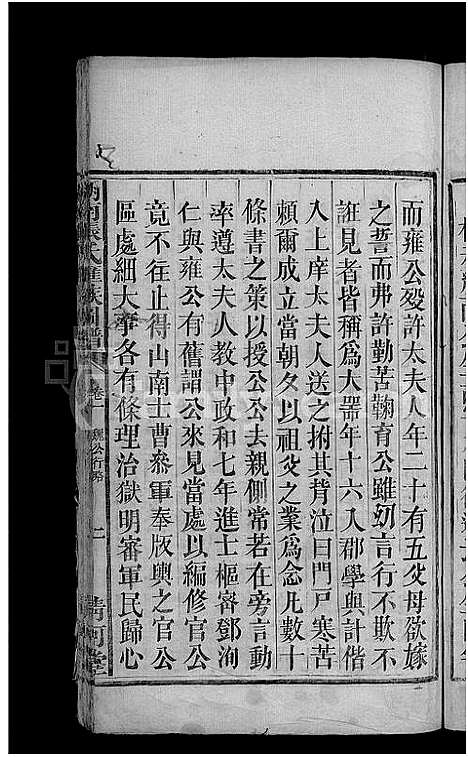 而雍公歿許太夫人年二十有五父母欲嫁
之誓而弗許勤苦鞠育公雖幼言行不欺不
誑見者皆稱爲大器年十六入郡學與計偕
入上庠太夫人送之拊其背泣曰門戶寒苦
賴爾成立當朝夕以祖父之業爲念凡數十
條書之策以授公公去親側常若在旁言動
率遵太夫人教中政和七年進士樞密鄧洵
仁與雍公有舊謂公來見當處以編修官公
竟不往止得山南士曹叅軍奉版輿之官公
區處細大畢各有條理治獄明審軍民歸心
張氏 族 譜 卷一 魏公行 二 清河堂